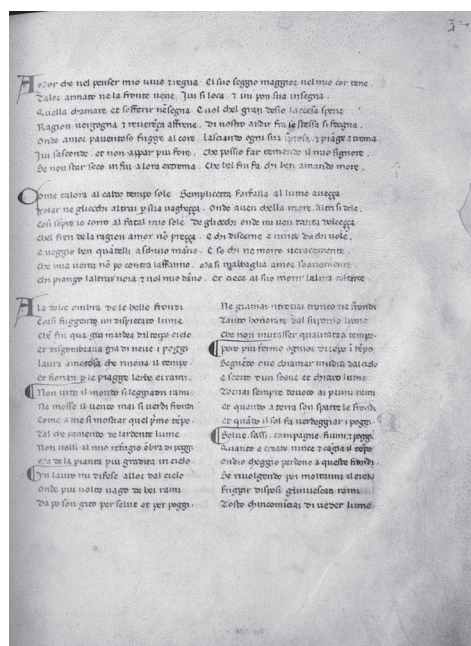 Amor che nel penser mio uiue et regna. El suo seggio maggior nel mio cor tene.
Talor armato ne la fronte uene. Iui si loca. et iui pon sua insegna.
Quella chamare et sofferir nensegna. E uol chel gran desio laccesa spene
Ragion. uergogna et reuereza affrene. Di nostro ardir fra se stessa si sdegna.
Onde amor pauentoso fugge al core. lasciando ogni sua ipresa. et piage et trema.
Iui sasconde. et non appar piu fore. Che posso far temendo il mio signore.
Se non star seco in fin a lora extrema. Che bel fin fa chi ben amando more.
Come talora al caldo tempo sole Semplicetta farfalla al lume auezza
Volar ne gliocchi altrui p sua uaghezza. Onde auen chella more. altri si dole.
Cosi sepre io corro al fatal mio sole De gliocchi onde mi uen tanta dolcezza
Chel fren de la ragion amor no prezza. E chi discerne e uinto da chi uole.
E ueggio ben quatelli a schiuo mano. E so chi ne morro ueracemente.
Che mia uertu no po contra laffanno. Ma si mabbaglia amor soauemente
Chi piango laltrui noia et nol mio dano. Et cieca al suo morir lalma cosente.
A la dolce ombra de le belle frondi
Corsi fuggendo un dispietato lume
Che fin qua giu mardea dal terzo cielo
Et disgombraua gia di neue i poggi
Laura amorosa che rinoua il tempo
Et fiorian p le piagge lerbe et rami.
Non uide il mondo si leggiadri rami
Ne mosse il uento mai si uerdi frondi
Come a me si mostrar quel pmo tepo.
Tal che temendo de lardente lume
Non uolsi al mio refugio obra di poggi
Ma de la pianta piu gradita in cielo.
Un lauro mi difese allor dal cielo
Onde piu uolte uago de bei rami
Da po son gito per selue et per poggi.
Ne giamai ritrouai tronco ne frondi
Tanto honorate dal supno lume
Che non mutasser qualitate a tempo.
Pero piu fermo ognor di tepo i tepo
Seguedo oue chiamar mudia dal cielo
E scorto dun soaue et chiaro lume
Tornai sempre deuoto ai primi rami
Et quando a terra son sparte le frondi
Et quado il sol fa uerdeggiar i poggi.
Selue. sassi. campagne. fiumi. et poggi
Quanto e creato uince et cagia il tepo
Ondio cheggio perdono a queste frondi
Se riuolgendo poi moltanni il cielo
Fuggir disposi glinuescati rami
Tosto chincominciai di ueder lume.